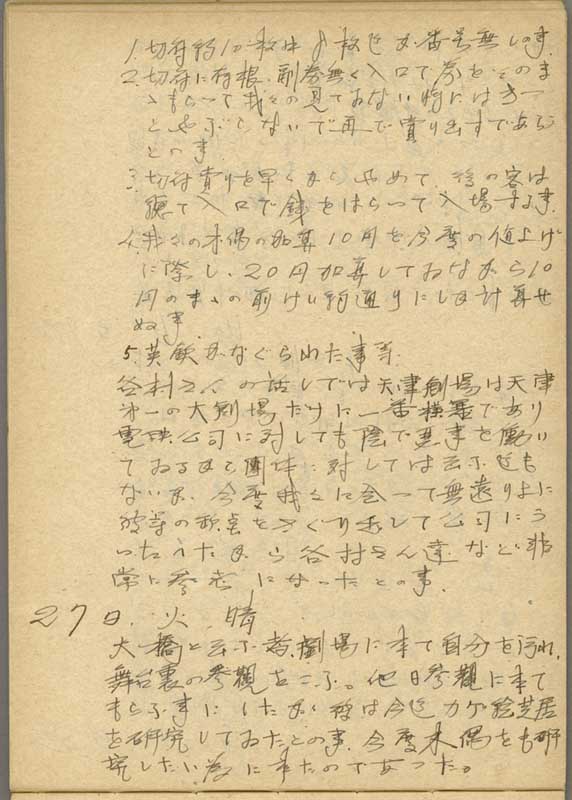 1. 切符約10枚中8枚迄が番号無しの事.
2. 切符に存根、副券無く入口で券をそのま
ゝもらって我々の見ておない時には
とやぶしないで再で賣り出すであらう
との事
3. 切符賣りを早くからやめて、後の客は
聴て入口で錢をはらって入場する事.
4. 我々の木偶の加算10円を今度の値上げ
に際し、20円加算しておながら10
円のまゝの前けい約通りにしか計算せ
ぬ事.
5. 英欽がなぐられた事等.
谷村さんの話しでは天津劇場は天津
第一の大劇場だけに一番横暴であり
電映公司に対しても陰で悪事を働い
ておるので團体に対しては云ふ迄も
ないが、今度我々に会って無遠りよに
彼等の欠点をさぐり出して公司にう
ったへたから谷村さん達など非
常に参考になったとの事.
27日. 火 晴
大橋と云ふ者劇場に来て自分を
舞台裏の参觀をこふ。他日参觀に来て
もらふ事にしたが彼は今迄カゲ絵芝居
を研究しておたとの事. 今度木偶をも研
究したい為に来たのであった。